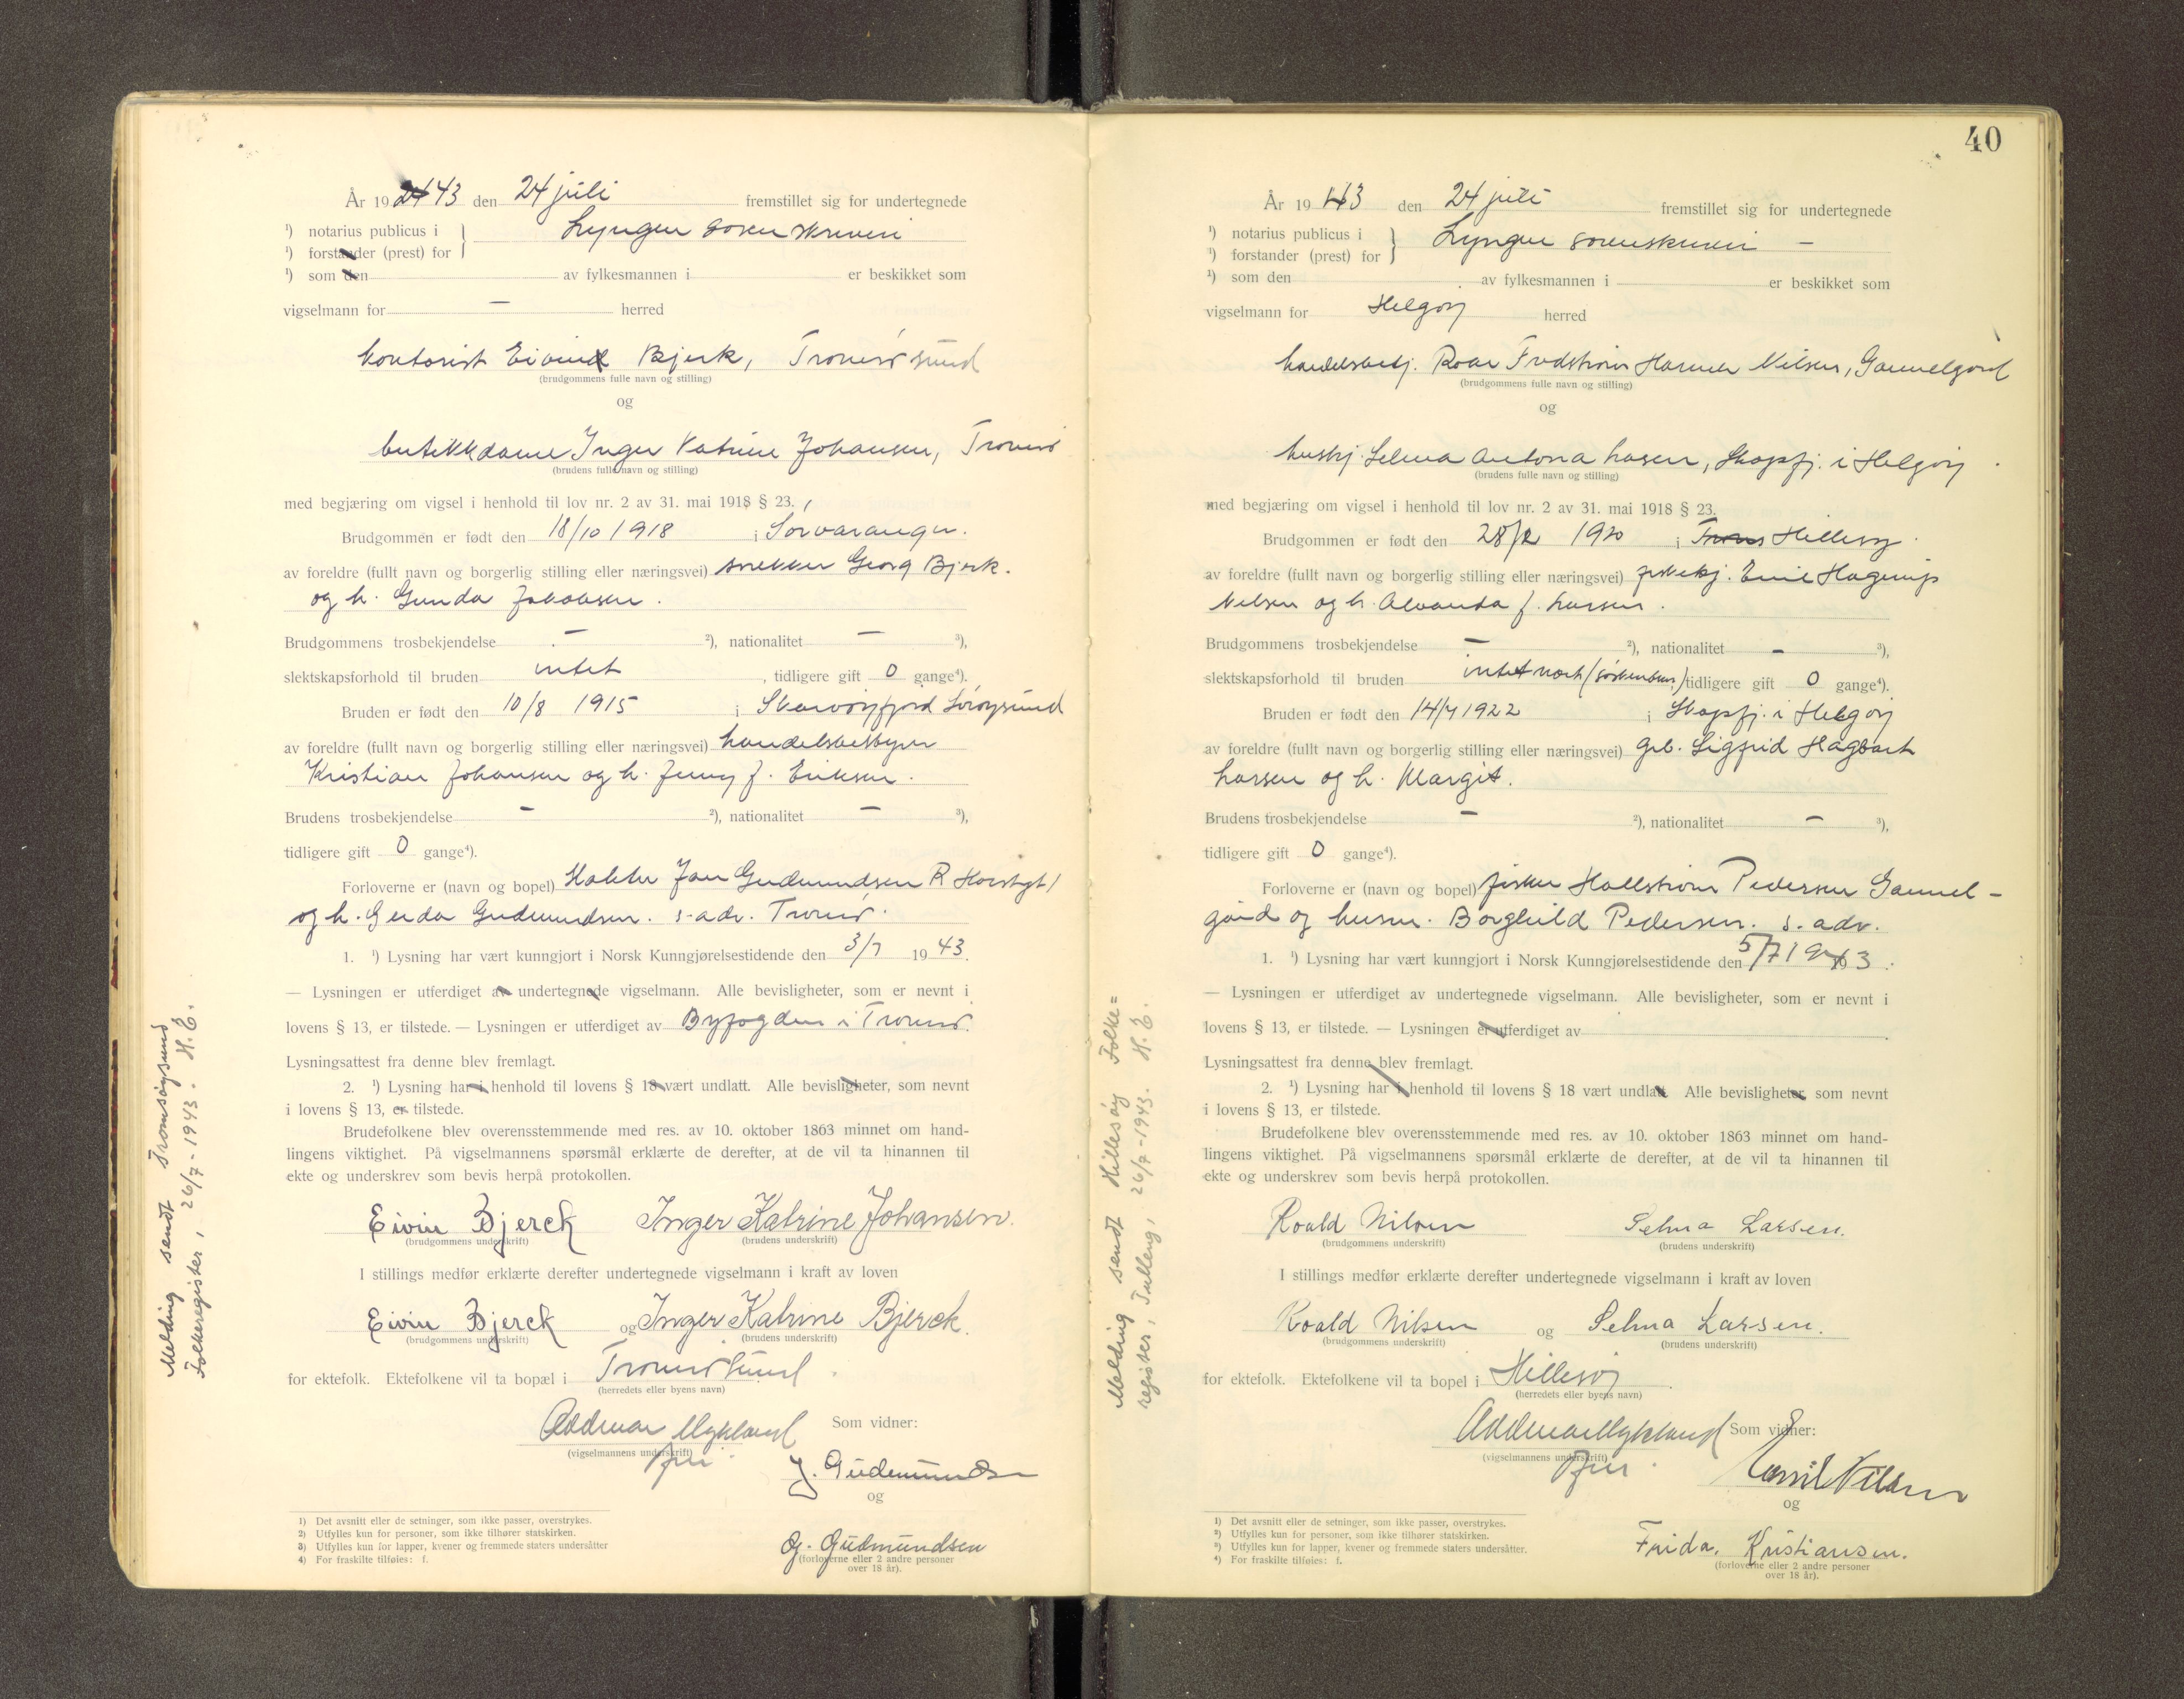 År 1943 den 24 juli fremstillet sig for undertegnede
¹) notarius publicus i
¹) forstander (prest) for } Lyngen sorenskriveri
¹) som den av fylkesmannen i er beskikket som
vigselmann for — herred
kontorist Eivind Bjerk, Tromsøsund
(brudgommens fulle navn og stilling)
og
butikkdame Inger Katrine Johansen, Tromsø
(brudens fulle navn og stilling)
med begjæring om vigsel i henhold til lov nr. 2 av 31. mai 1918 § 23.
Brudgommen er født den 18/10 1918 i Sørvaranger.
av foreldre (fullt navn og borgerlig stilling eller næringsvei) snekker Georg Bjerk.
og h. Gunda Jakobsen.
Brudgommens trosbekjendelse — ²), nationalitet — ³),
slektskapsforhold til bruden intet, tidligere gift 0 gange⁴).
Bruden er født den 10/8 1915 i Sørøysund
av foreldre (fullt navn og borgerlig stilling eller næringsvei) handelsbestyrer
Kristian Johansen og h. Jenny f. Eriksen.
Brudens trosbekjendelse — ²), nationalitet — ³),
tidligere gift 0 gange⁴).
Forloverne er (navn og bopel) Jan Gudmundsen R
og h. Gerda Gudmundsen. s. adr. Tromsø.
1. ¹) Lysning har vært kunngjort i Norsk Kunngjørelsestidende den 3/7 1943.
— Lysningen er utferdiget av undertegnede vigselmann. Alle bevisligheter, som er nevnt i
lovens § 13, er tilstede. — Lysningen er utferdiget av Byfogden i Tromsø.
Lysningsattest fra denne blev fremlagt.
2. ¹) Lysning har i henhold til lovens § 18 vært undlatt. Alle bevisligheter, som nevnt
i lovens § 13, er tilstede.
Brudefolkene blev overensstemmende med res. av 10. oktober 1863 minnet om hand-
lingens viktighet. På vigselmannens spørsmål erklærte de derefter, at de vil ta hinannen til
ekte og underskrev som bevis herpå protokollen.
Eivin Bjerck Inger Katrine Johansen.
(brudgommens underskrift) (brudens underskrift)
I stillings medfør erklærte derefter undertegnede vigselmann i kraft av loven
Eivin Bjerck og Inger Katrine Bjerck.
(brudgommens underskrift) (brudens underskrift)
for ektefolk. Ektefolkene vil ta bopæl i Tromsøsund
(herredets eller byens navn)
Mykland Som vidner:
(vigselmannens underskrift)
J. Gudmundsen
og
G. Gudmundsen
(forloverne eller 2 andre personer
over 18 år).
1) Det avsnitt eller de setninger, som ikke passer, overstrykes.
2) Utfylles kun for personer, som ikke tilhører statskirken.
3) Utfylles kun for lapper, kvener og fremmede staters undersåtter
4) For fraskilte tilføies: f.
Melding sendt Tromsøysund
Folkeregister, 26/7-1943. H. E.
40
År 1943 den 24 juli fremstillet sig for undertegnede
¹) notarius publicus i
¹) forstander (prest) for } Lyngen sorenskriveri —
¹) som den av fylkesmannen i er beskikket som
vigselmann for Helgøy herred
handelsbetj. Roar Nilsen, Gammelgård
(brudgommens fulle navn og stilling)
og
hushj. Selma Antona Larsen, Skogsfj. i Helgøy
(brudens fulle navn og stilling)
med begjæring om vigsel i henhold til lov nr. 2 av 31. mai 1918 § 23.
Brudgommen er født den 28/2 1920 i Troms Hillesøy
av foreldre (fullt navn og borgerlig stilling eller næringsvei) Emil Hagerup
Nilsen og h. Alvanda f. Larsen.
Brudgommens trosbekjendelse — ²), nationalitet — ³),
slektskapsforhold til bruden intet nært (søskenbarn) tidligere gift 0 gange⁴).
Bruden er født den 14/7 1922 i Skogsfj. i Helgøy
av foreldre (fullt navn og borgerlig stilling eller næringsvei) grb. Sigfrid Hagbart
Larsen og h. Margit.
Brudens trosbekjendelse — ²), nationalitet — ³),
tidligere gift 0 gange⁴).
Forloverne er (navn og bopel) fisker Hallstrøm Pedersen Gammel-
gård og hustru. Borghild Pedersen. s. adr.
1. ¹) Lysning har vært kunngjort i Norsk Kunngjørelsestidende den 5/7 1943.
— Lysningen er utferdiget av undertegnede vigselmann. Alle bevisligheter, som er nevnt i
lovens § 13, er tilstede. — Lysningen er utferdiget av
Lysningsattest fra denne blev fremlagt.
2. ¹) Lysning har i henhold til lovens § 18 vært undlatt. Alle bevisligheter, som nevnt
i lovens § 13, er tilstede.
Brudefolkene blev overensstemmende med res. av 10. oktober 1863 minnet om hand-
lingens viktighet. På vigselmannens spørsmål erklærte de derefter, at de vil ta hinannen til
ekte og underskrev som bevis herpå protokollen.
Roald Nilsen Selma Larsen.
(brudgommens underskrift) (brudens underskrift)
I stillings medfør erklærte derefter undertegnede vigselmann i kraft av loven
Roald Nilsen og Selma Larsen.
(brudgommens underskrift) (brudens underskrift)
for ektefolk. Ektefolkene vil ta bopel i Hillesøy
(herredets eller byens navn)
Mykland Som vidner:
(vigselmannens underskrift)
Nilsen
og
Frida. Kristiansen.
(forloverne eller 2 andre personer
over 18 år).
1) Det avsnitt eller de setninger, som ikke passer, overstrykes.
²) Utfylles kun for personer, som ikke tilhører statskirken.
³) Utfylles kun for lapper, kvener og fremmede staters undersåtter.
⁴) For fraskilte tilføies: f.
Melding sendt Hillesøy Folke=
register, Tulleng, 26/7-1943. H. E.